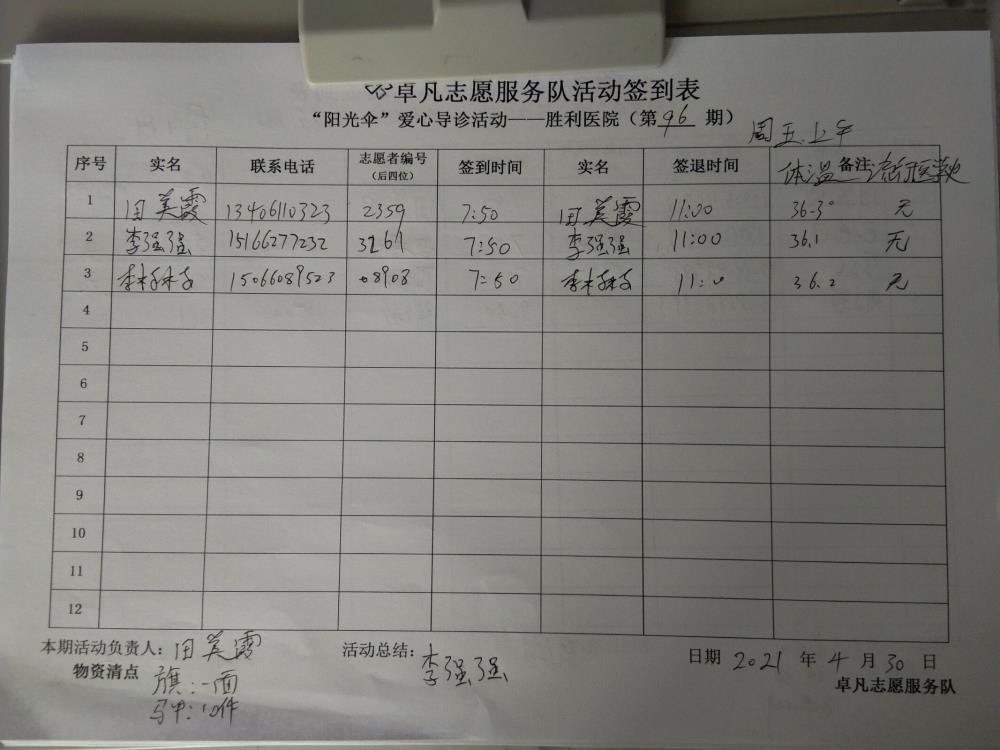 卓凡志愿服务队活动签到表
“阳光伞”爱心导诊活动——胜利医院（第96期）
周五.上午
序号 实名 联系电话 志愿者编号（后四位） 签到时间 实名 签退时间 体温 备注 流行医学史
1 田美霞 13406110323 2359 7:50 田美霞 11:00 36.3° 无
2 李强强 15166277232 3261 7:50 李强强 11:00 36.1 无
3 15066089523 8908 7:50 11:0 36.2 无
4
5
6
7
8
9
10
11
12
本期活动负责人：田美霞 活动总结：李强强 日期 2021 年 4 月 30 日
物资清点 旗：一面 卓凡志愿服务队
马甲：10件